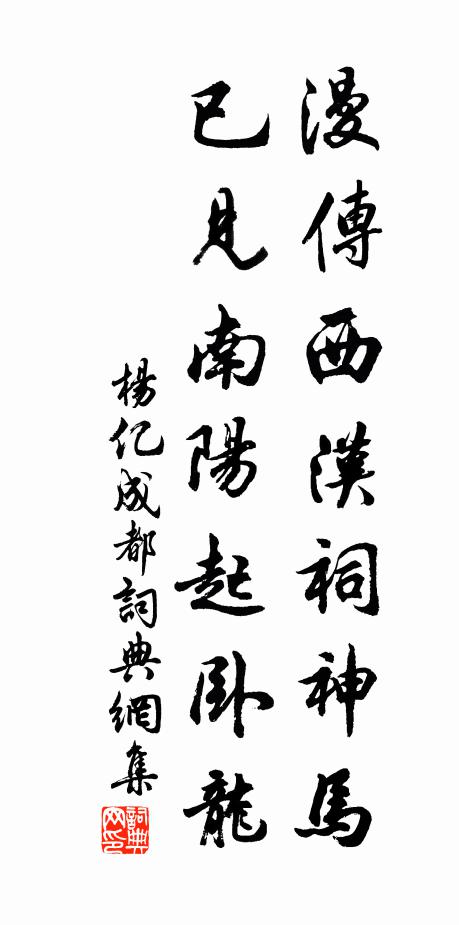 漫傳西漢祠神馬
已見南陽起卧龍
楊亿成都詞典網集
詞典网印